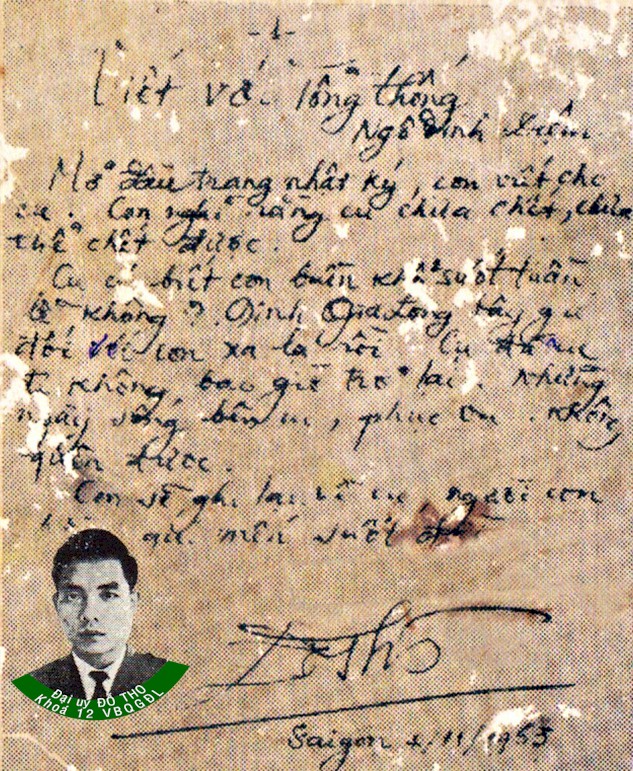 -1-
Viết về Tổng thống
Ngô Đình Diệm
Mở đầu trang nhật ký, con viết cho
cụ. Con nghĩ rằng cụ chưa chết, chưa
thể chết được.
Cụ có biết con buồn khổ suốt tuần
lễ không? Dinh Gia Long bây giờ
đối với con xa lạ rồi. Cụ đã
đi không bao giờ trở lại. Những
ngày sống bên cụ, phục vụ. Không
quên được.
Con sẽ ghi lại về cụ, người con
quí mến suốt đời
Đỗ Thọ
Saigon /11/1963
Đại uý ĐỖ THỌ
Khoá 12 VBQGĐL